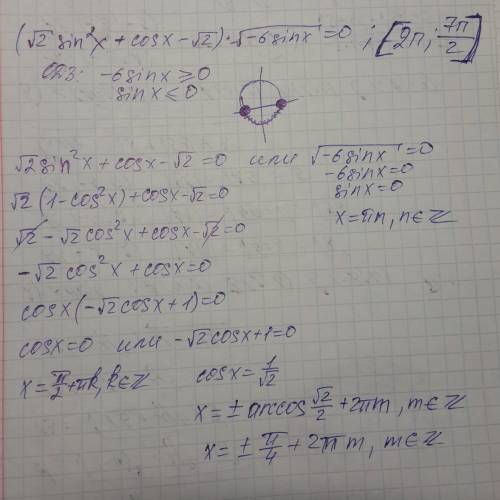 (√2 sin²x + cosx - √2) · √-6sinx = 0 ; [2π; 7π/2]
ОДЗ: -6sinx ≥ 0
sinx ≤ 0
√2 sin²x + cosx - √2 = 0 или √-6sinx = 0
-6sinx = 0
√2 (1 - cos²x) + cosx - √2 = 0
sinx = 0
√2 - √2 cos²x + cosx - √2 = 0
x = πn, n ∈ Z
-√2 cos²x + cosx = 0
cosx (-√2 cosx + 1) = 0
cosx = 0 или -√2 cosx + 1 = 0
x = π/2 + πk, k ∈ Z
cosx = 1/√2
x = ± arccos √2/2 + 2πm, m ∈ Z
x = ± π/4 + 2πm, m ∈ Z